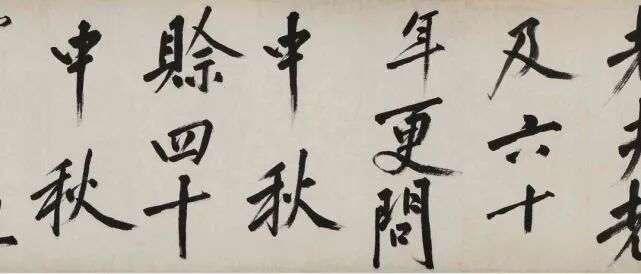 及六十
年更問
中秋
賒四十
中秋